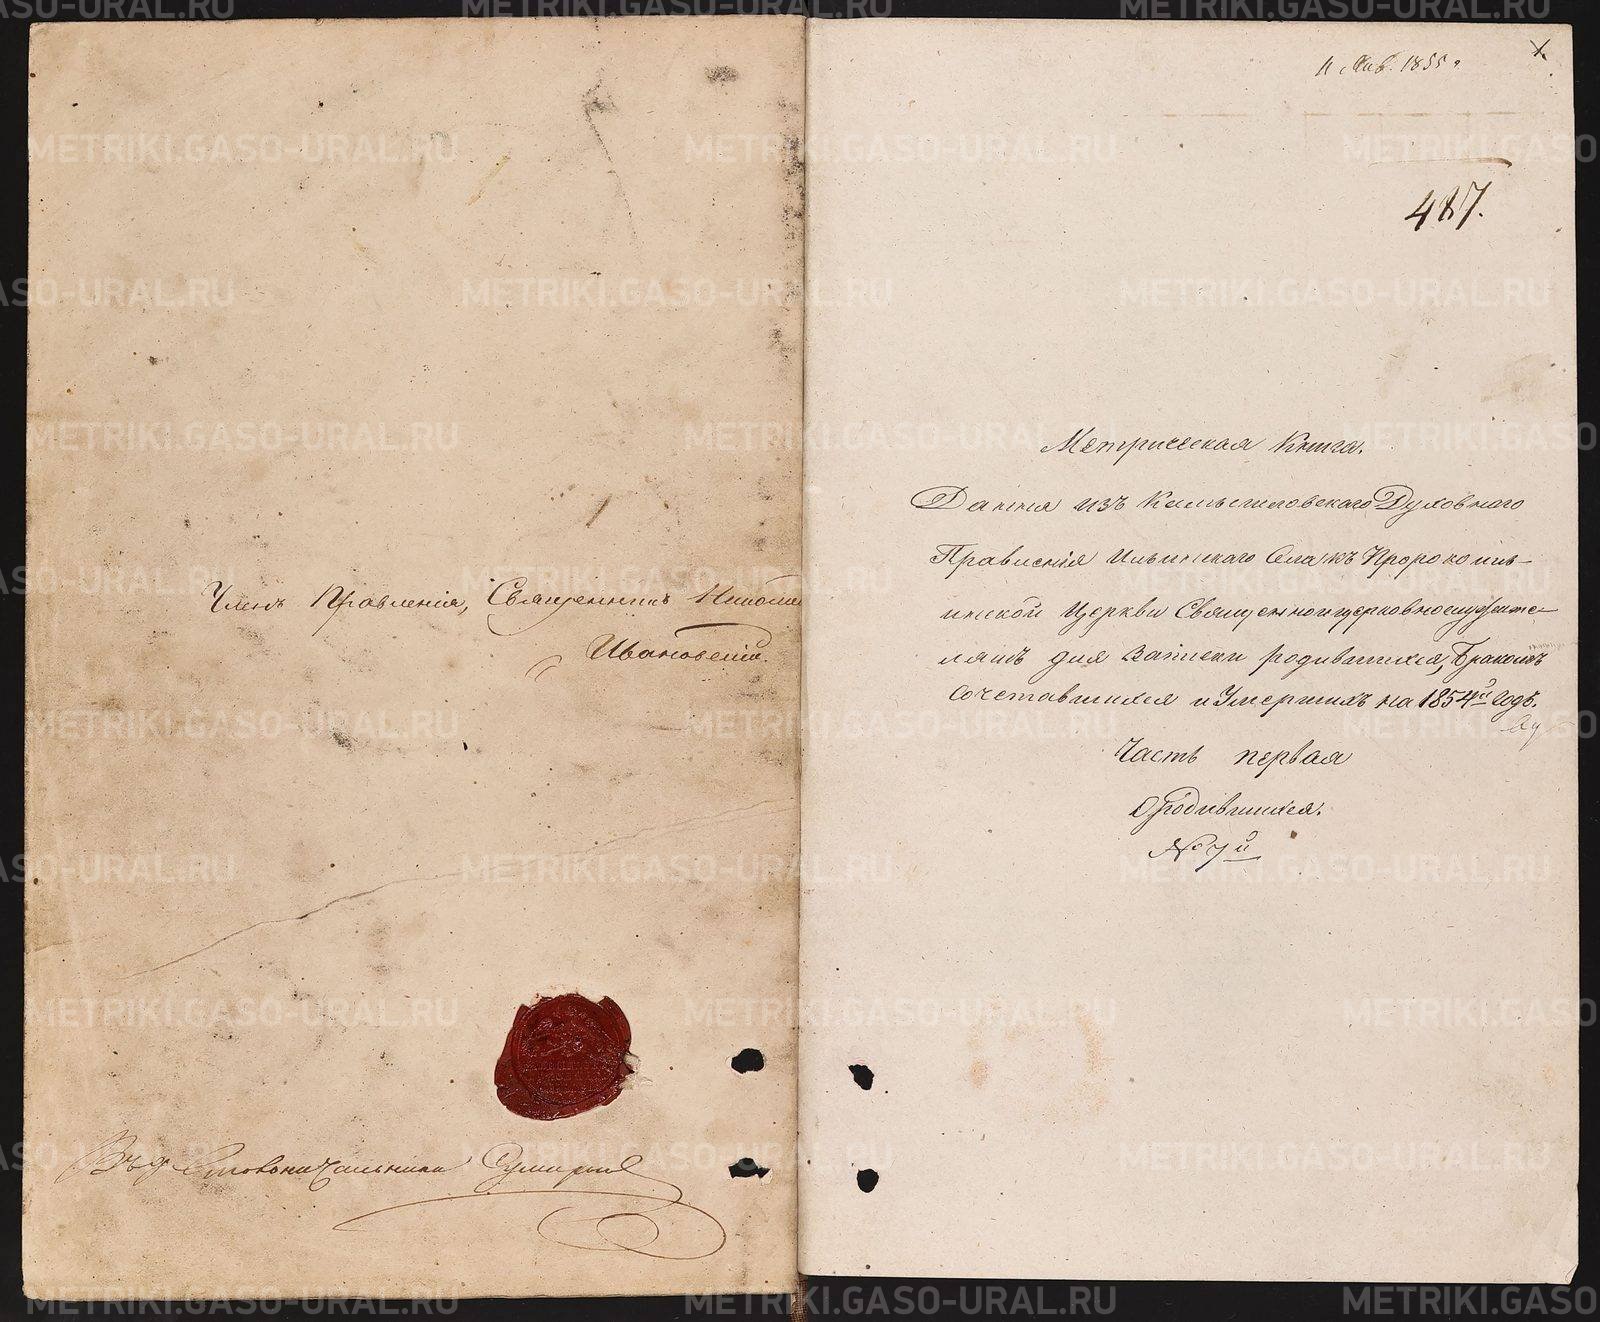 Членъ Правленія, Священникъ Никола
Ивановскій.
Столоначальника
11 Янв. 1855 г.
487.
Метрическая Книга.
Данная изъ Камышловскаго Духовнаго
Правленія Ильинскаго Села къ Пророкоиль-
инской Церкви Священноицерковнослужите-
лямъ для Записки родившихся, Бракомъ
Сочетавшихся и Умершихъ на 1854й Годъ.
Часть первая
О Родившихся.
№ 7й
METRIKI.GASO-URAL.RU